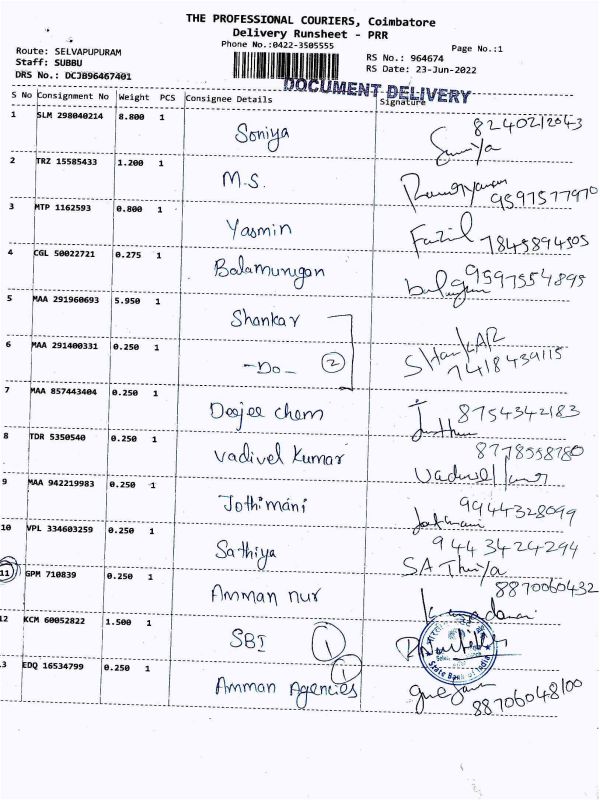 THE PROFESSIONAL COURIERS, Coimbatore
Delivery Runsheet - PRR
Phone No.:0422-3505555
Page No.:1
Route: SELVAPUPURAM
Staff: SUBBU
DRS No.: DCJB96467401
RS No.: 964674
RS Date: 23-Jun-2022
DOCUMENT DELIVERY
S No Consignment No Weight PCS Consignee Details Signature
1 SLM 298040214 8.800 1 Soniya 8240212043
2 TRZ 15585433 1.200 1 M.S. 9597577970
3 MTP 1162593 0.800 1 Yasmin Fazil 7845894505
4 CGL 50022721 0.275 1 Balamurugan 9597554895
5 MAA 291960693 5.950 1 Shankar
6 MAA 291400331 0.250 1 -Do- 2 SHanKAR 7418439115
7 MAA 857443404 0.250 1 Deejee chem 8754342183
8 TDR 5350540 0.250 1 Vadivel Kumar 8778558780
9 MAA 942219983 0.250 1 Jothimani 9944328099
10 VPL 334603259 0.250 1 Sathiya 9443424294 SAThiya
11 GPM 710839 0.250 1 Amman nur 8870060432
12 KCM 60052822 1.500 1 SBI 1 State Bank of India
13 EDQ 16534799 0.250 1 Amman Agencies 1 88706048100